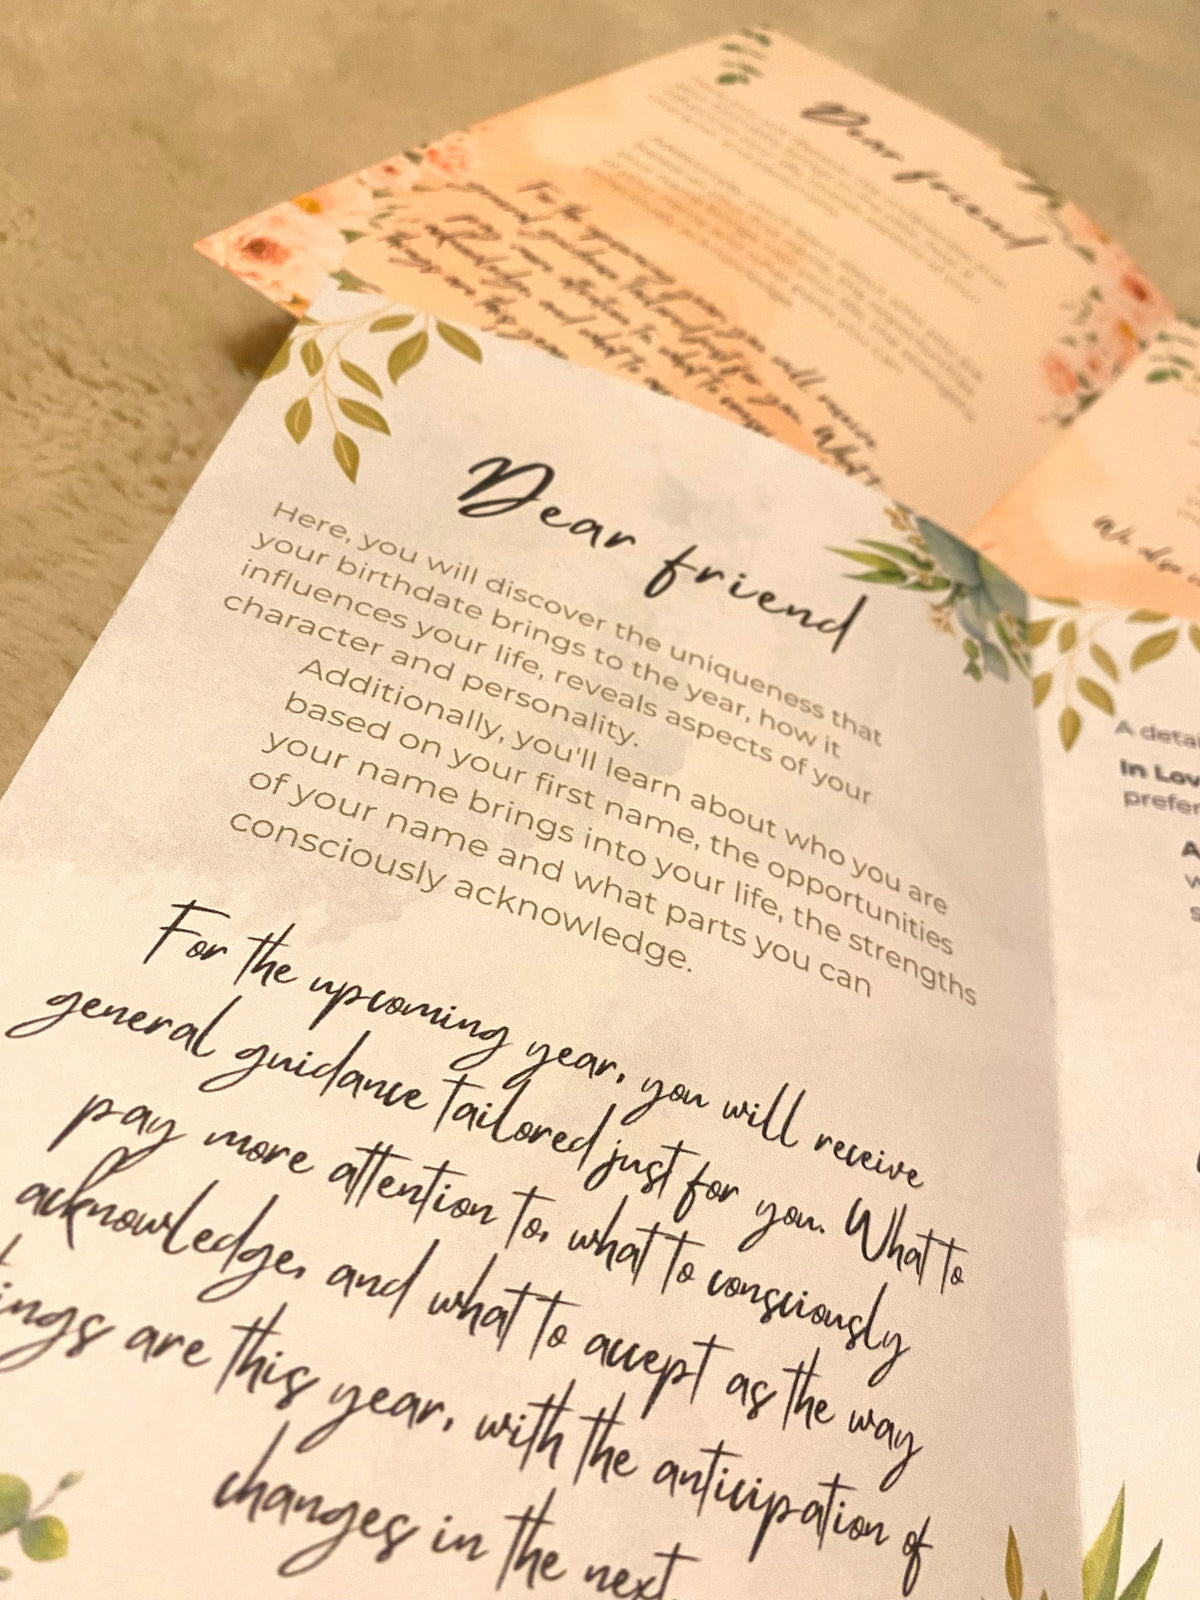 Dear friend
Here, you will discover the uniqueness that
your birthdate brings to the year, how it
influences your life, reveals aspects of your
character and personality.
Additionally, you'll learn about who you are
based on your first name, the opportunities
your name brings into your life, the strengths
of your name and what parts you can
consciously acknowledge.
For the upcoming year, you will receive
general guidance tailored just for you. What to
pay more attention to, what to consciously
acknowledge, and what to accept as the way
ings are this year, with the anticipation of
changes in the next
Dear friend
For the upcoming year, you will receive
general guidance tailored just for you. What t
pay more attention to, what to consc
acknowledge, and what to ac
things are this year
We also c
A detai
In Lov
prefer
A
w
s